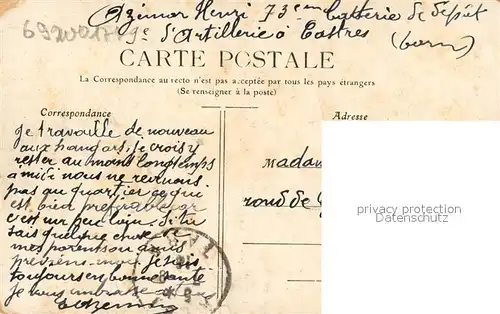 Azimar Henri 73ème batterie de dépôt
9e d'Artillerie à Castres
(Tarn)
69200178
CARTE POSTALE
La Correspondance au recto n'est pas acceptée par tous les pays étrangers
(Se renseigner à la poste)
Correspondance
Adresse
je travaille de nouveau
aux hangars, je crois y
rester au moins longtemps
a midi nous ne revenons
pas au quartier ce qui
est bien préférable
c'est un peu loin. Si tu
sais quelque chose de
mes parents ou amis
préviens-moi je suis
toujours en bonne santé
je vous embrasse
Madam
rond de
privacy protection
Datenschutz